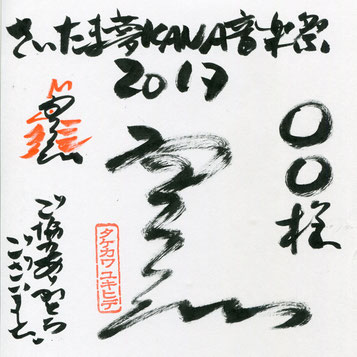 さいたま夢KANA音楽祭
2017
〇〇様
タケカワユキヒデ
ご協力ありがとう
ございました。